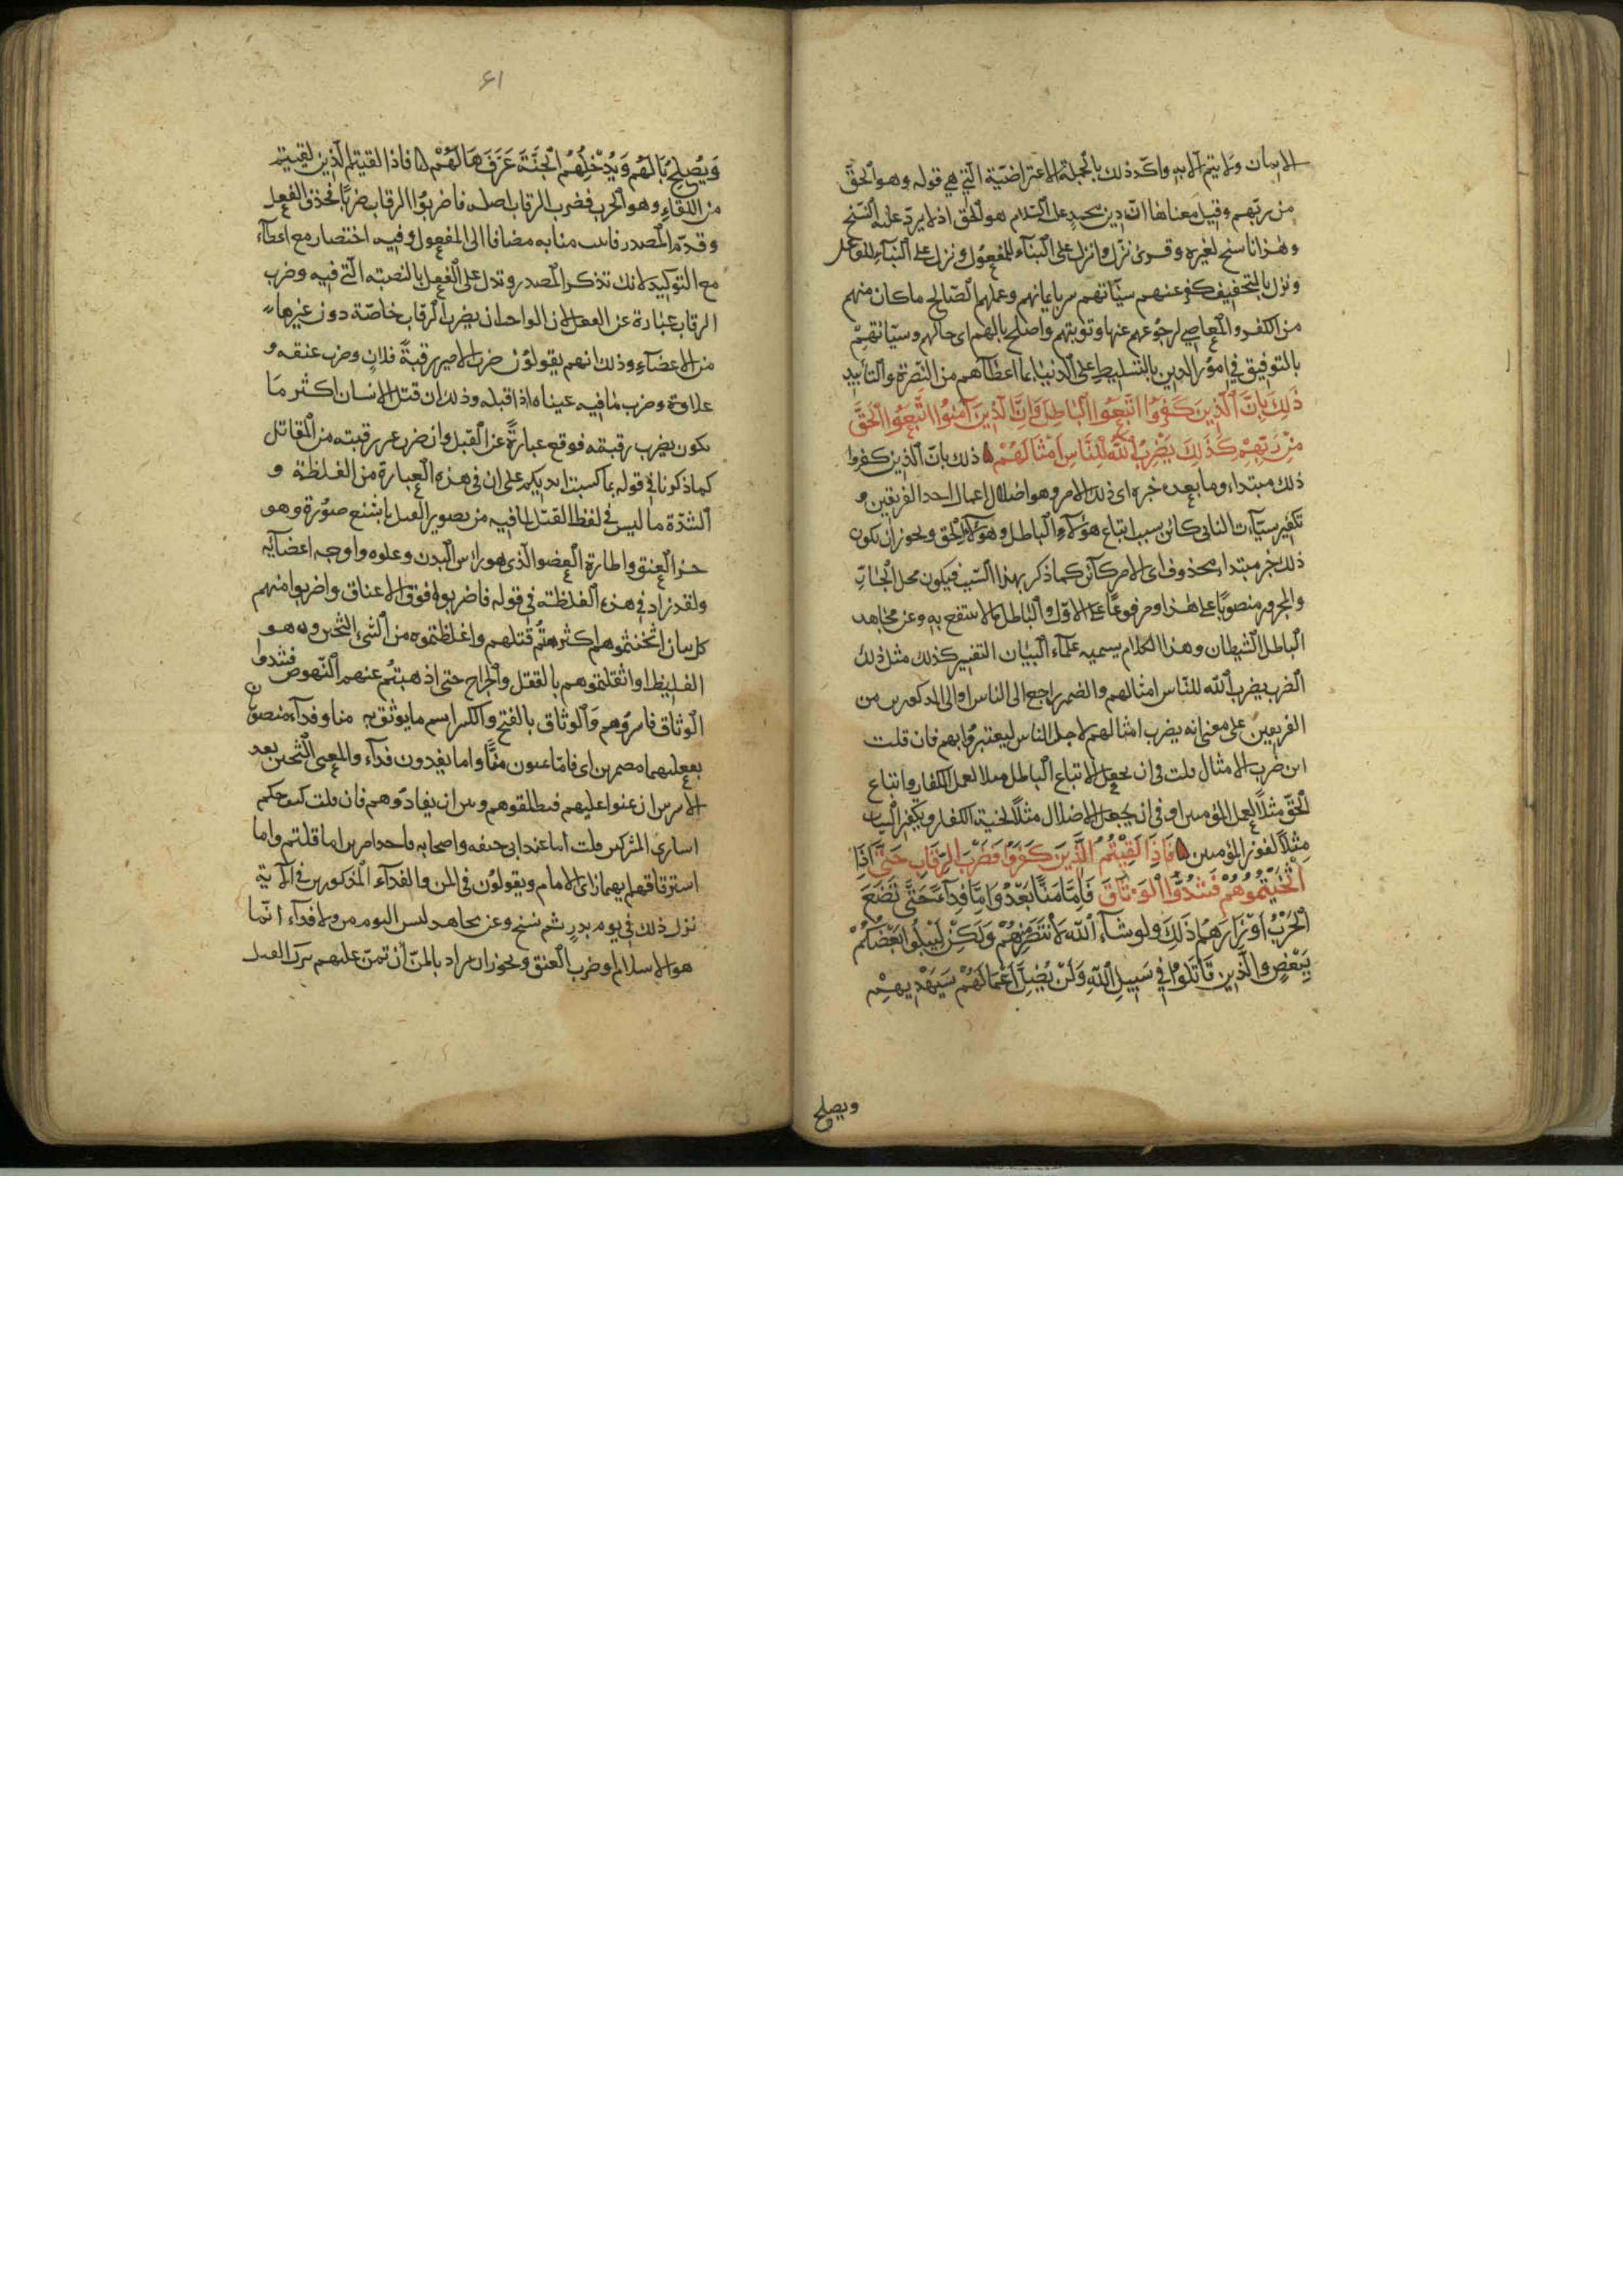 الايمان ولا يتم الا به واكد ذلك بالجملة الاعتراضية التي هي قوله وهو الحق
من ربهم وقيل معناها ان دين محمد عليه السلام هو الحق اذ لا يرد عليه النسخ
وهذا ناسخ لغيره وقرئ نزل وانزل على البناء للمفعول ونزل على البناء للفاعل
ونزل بالتخفيف كفر عنهم سيّاتهم ستر بايمانهم وعملهم الصالح ما كان منهم
من الكفر والمعاصي لرجوعهم عنها وتوبتهم واصلح بالهم اى حالهم وسيّاتهم
بالتوفيق في امور الدين بالتسليط على الدنيا بما اعطاهم من النصرة والتأييد
ذَلِكَ بِاَنَّ الَّذِينَ كَفَرُوا اتَّبَعُوا الْبَاطِلَ وَاِنَّ الَّذِينَ آمَنُوا اتَّبَعُوا الْحَقَّ
مِنْ رَبِّهِمْ كَذَلِكَ يَضْرِبُ اللّٰهُ لِلنَّاسِ اَمْثَالَهُمْ ذلك بان الذين كفروا
ذلك مبتداء وما بعده خبره اى ذلك الامر وهو اضلال اعمال احد الفريقين و
تكفير سيّآت الثانى كائن بسبب اتباع هؤلاء الباطل وهؤلاء الحق ويجوز ان يكون
ذلك خبر مبتداء محذوف اى الامر كائن كما ذكر بهذا السبب فيكون محل الجارّ
والمجرور منصوبًا على هذا ومرفوعًا على الاول والباطل ما لا ينتفع به وعن مجاهد
الباطل الشيطان وهذا الكلام يسميه علماء البيان التفسير كذلك مثل ذلك
الضرب يضرب الله للناس امثالهم والضمير راجع الى الناس او الى المذكورين من
الفريقين على معنى انه يضرب امثالهم لاجل الناس ليعتبروا بهم فان قلت
اين ضرب الامثال قلت فى ان يجعل الاتباع الباطل مثلا لعمل الكفار واتباع
الحقّ مثلاً لعمل المؤمنين او فى ان يجعل الاضلال مثلاً لخيبة الكفار وتكفير السيات
مثلاً لفوز المؤمنين فَاِذَا لَقِيْتُمُ الَّذِيْنَ كَفَرُوا فَضَرْبَ الرِّقَابِ حَتَّى اِذَا
اَثْخَنْتُمُوهُمْ فَشُدُّوا الْوَثَاقَ فَاِمَّا مَنًّا بَعْدُ وَاِمَّا فِدَآءً حَتَّى تَضَعَ
الْحَرْبُ اَوْزَارَهَا ذَلِكَ ولو شآء اللّٰه لَانْتَصَرَ مِنْهُمْ وَلَكِنْ لِيَبْلُوَا بَعْضَكُمْ
بِبَعْضٍ والَّذِينَ قَاتَلُوا فِي سَبِيلِ اللّٰهِ وَلَنْ يُضِلَّ اَعْمَالَهُمْ سَيَهْدِيهِمْ
ويصلح
٤١
وَيُصْلِحُ بَالَهُمْ وَيُدْخِلُهُمُ الْجَنَّةَ عَرَّفَهَا لَهُمْ فاذا لقيتم الذين لقيتم
من اللقاء وهو الحرب فضرب الرقاب اصله فاضربوا الرقاب ضربًا فحذف الفعل
وقدّم المصدر فانيب منابه مضافا الى المفعول وفيه اختصار مع اعطآء
مع التوكيد لانك تذكر المصدر وتدل على الفعل بالنصبة التي فيه وضرب
الرقاب عبارة عن القتل لا ان الواجب ان يضرب الرقاب خاصّة دون غيرها
من الاعضآء وذلك انهم يقولون ضرب الامير رقبة فلان وضرب عنقه و
علاوته وضرب ما فيه عيناه اذا قبله وذلك ان قتل الانسان اكثر ما
يكون بضرب رقبته فوقع عبارةً عن القتل وان ضرب غير رقبته من المقاتل
كما ذكرنا فى قوله بما كسبت ايديكم على ان فى هذه العبارة من الغلظة و
الشدّة ما ليس فى لفظ القتل لما فيه من تصوير القتل باشنع صورة وهو
حز العنق واطارة العضو الذى هو راس البدن وعلوه واوجه اعضآيه
ولقد زاد فى هذه الغلظة فى قوله فاضربوا فوق الاعناق واضربوا منهم
كل بنان اثخنتموهم اكثرتم قتلهم واغلظتموه من الشئ الثخين وهو
الغليظ او اثقلتموهم بالقتل والجراح حتى اذهبتم عنهم النهوض فشدوا
الوثاق فاسروهم والوثاق بالفتح والكسر اسم ما يوثق به منا وفدآء منصوبان
بفعليهما مضمرين اى فامّا تمنون منًّا واما تفدون فدآء والمعنى التخيير بعد
الاسر بين ان يمنوا عليهم فيطلقوهم وبين ان يفادّوهم فان قلت كيف حكم
اسارى المشركين قلت اما عند ابى حنيفه واصحابه فاحد امرين اما قتلهم واما
استرقاقهم ايهما راى الامام ويقولون فى المن والفدآء المذكورين فى الآية
نزل ذلك فى يوم بدر ثم نسخ وعن مجاهد ليس اليوم من ولا فدآء انما
هو الاسلام او ضرب العنق ويجوز ان يراد بالمنّ ان تمنّ عليهم بترك القتل